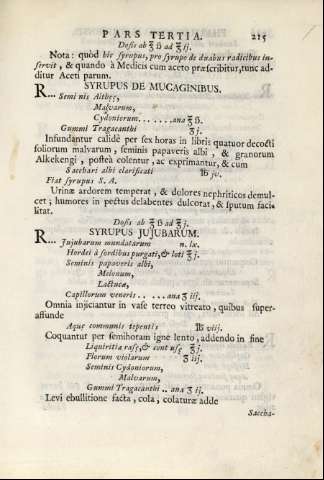 PARS TERTIA. 215
Dosis ab ℥ ß ad ℥ij.
Nota: quòd hic syrupus, pro syrupo de duabus radicibus in-
servit, & quando à Medicis cum aceto præscribitur, tunc ad-
ditur Aceti parum.
SYRUPUS DE MUCAGINIBUS.
R... Seminis Altheę,
Malvarum,
Cydoniorum.......ana ℥ ß.
Gummi Tragacanthi ʒj.
Infundantur calidè per sex horas in libris quatuor decocti
foliorum malvarum, seminis papaveris albi, & granorum
Alkekengi, posteà colentur, ac exprimantur, & cum
Sacchari albi clarificati ℔ jv.
Fiat syrupus S. A.
Urinæ ardorem temperat, & dolores nephriticos demul-
cet; humores in pectus delabentes dulcorat, & sputum faci-
litat.
Dosis ab ℥ ß ad ℥j.
SYRUPUS JUJUBARUM.
R... Jujubarum mundatarum n. lx.
Hordei à sordibus purgati, & loti ℥j.
Seminis papaveris albi,
Melonum,
Lactucæ,
Capillorum veneris.......ana ʒ iij.
Omnia injiciantur in vase terreo vitreato, quibus super-
affunde
Aquę communis tepentis ℔ viij.
Coquantur per semihoram igne lento, addendo in fine
Liquiritiæ rasę, & contusę ℥j.
Florum violarum ʒ iij.
Seminis Cydoniorum,
Malvarum,
Gummi Tragacanthi.. ana ʒ ij.
Levi ebullitione facta, cola; colaturæ adde
Saccha-